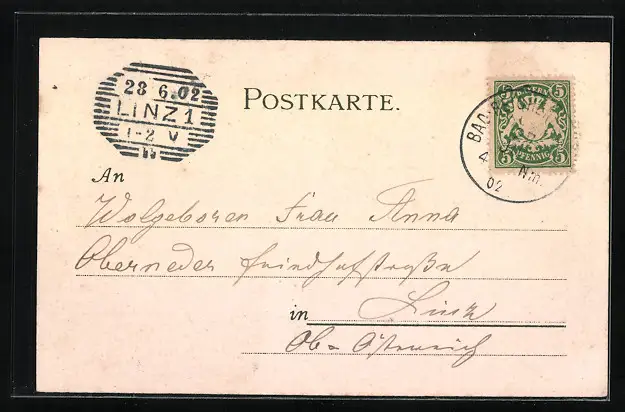 28 6.02
LINZ 1
1-2 V
POSTKARTE.
5 BAYERN 5
5 PFENNIG 5
BAD
4 Nm.
02
An
Wolgeboren Frau Anna
Oberneder Friedhofstraße
in Linz
Ob= Östereich